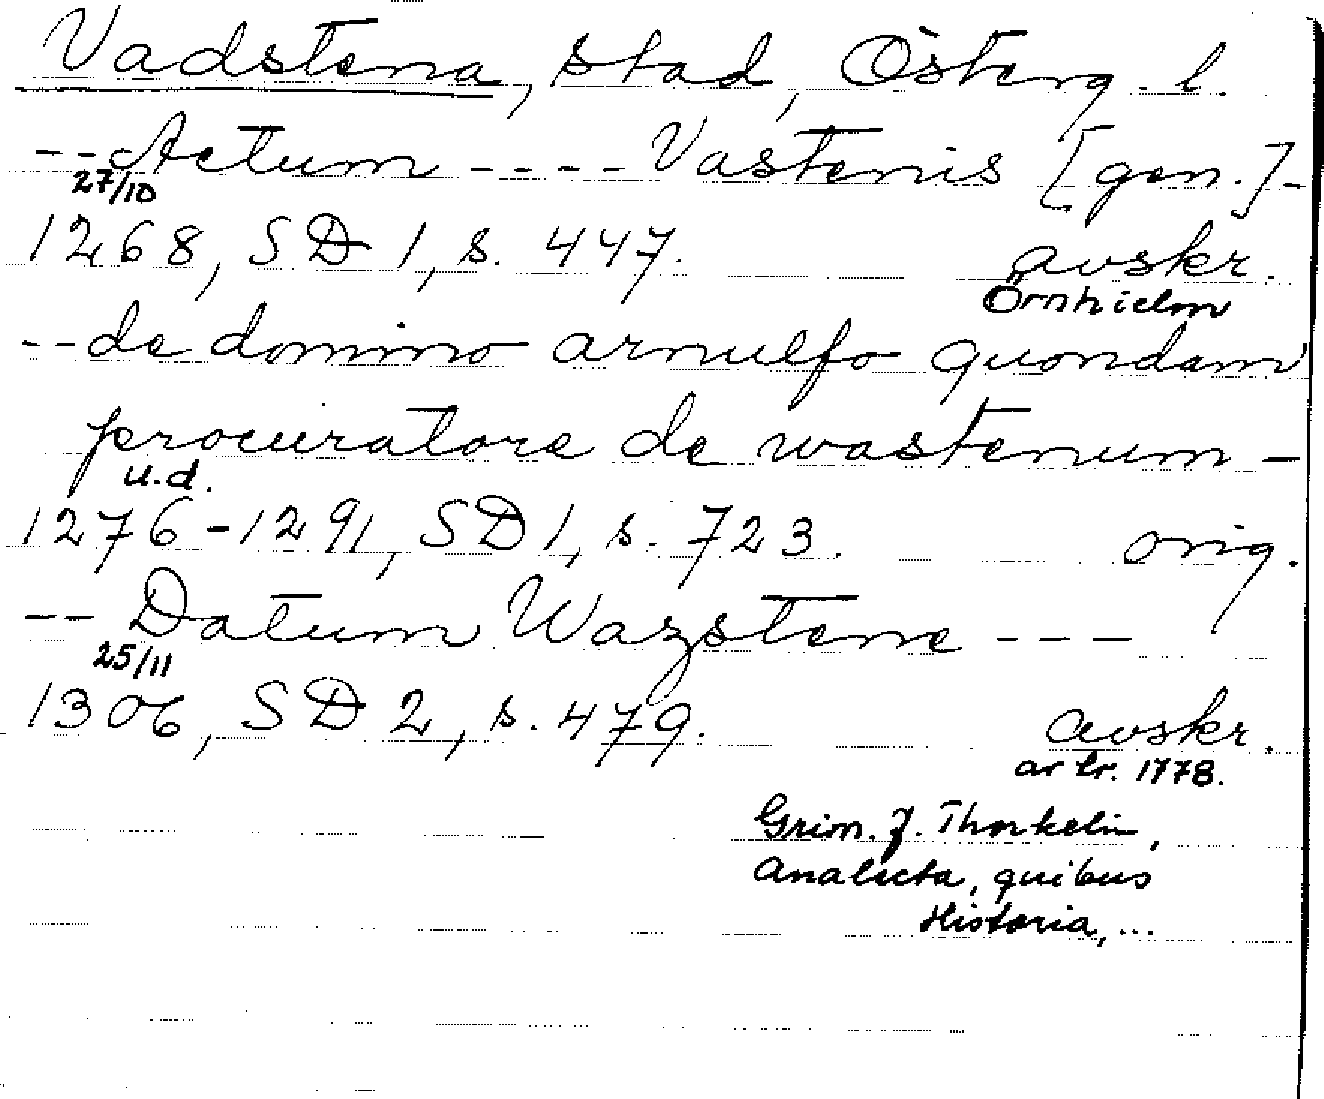 Vadstena, stad, Österg. l.
-- Actum ---- Vastenis [gen.] -
27/10
1268, SD 1, s. 447. avskr.
Örnhielm
-- de domino arnulfo quondam
procuratore de wastenum -
u.d.
1276-1291, SD 1, s. 723. orig.
-- Datum Wazstene ---
25/11
1306, SD 2, s. 479. avskr.
av tr. 1778.
Grim. J. Thorkelin,
Analecta, quibus
Historia, ...